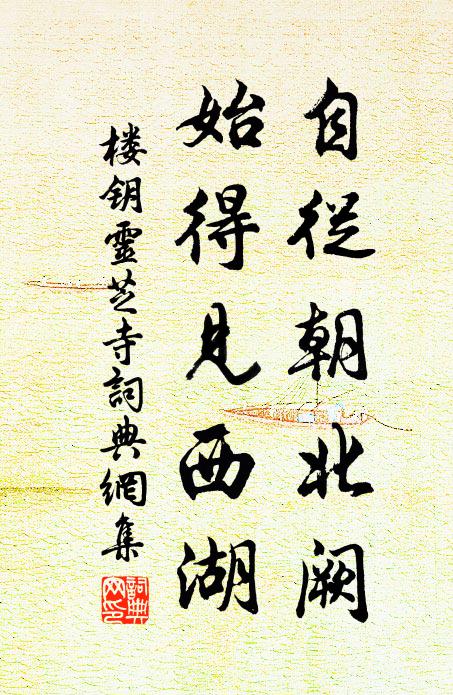 自從朝北闕
始得見西湖
楼钥靈芝寺詞典網集
詞典網印